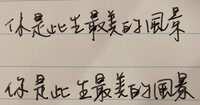 你是此生最美的風景
你是此生最美的風景